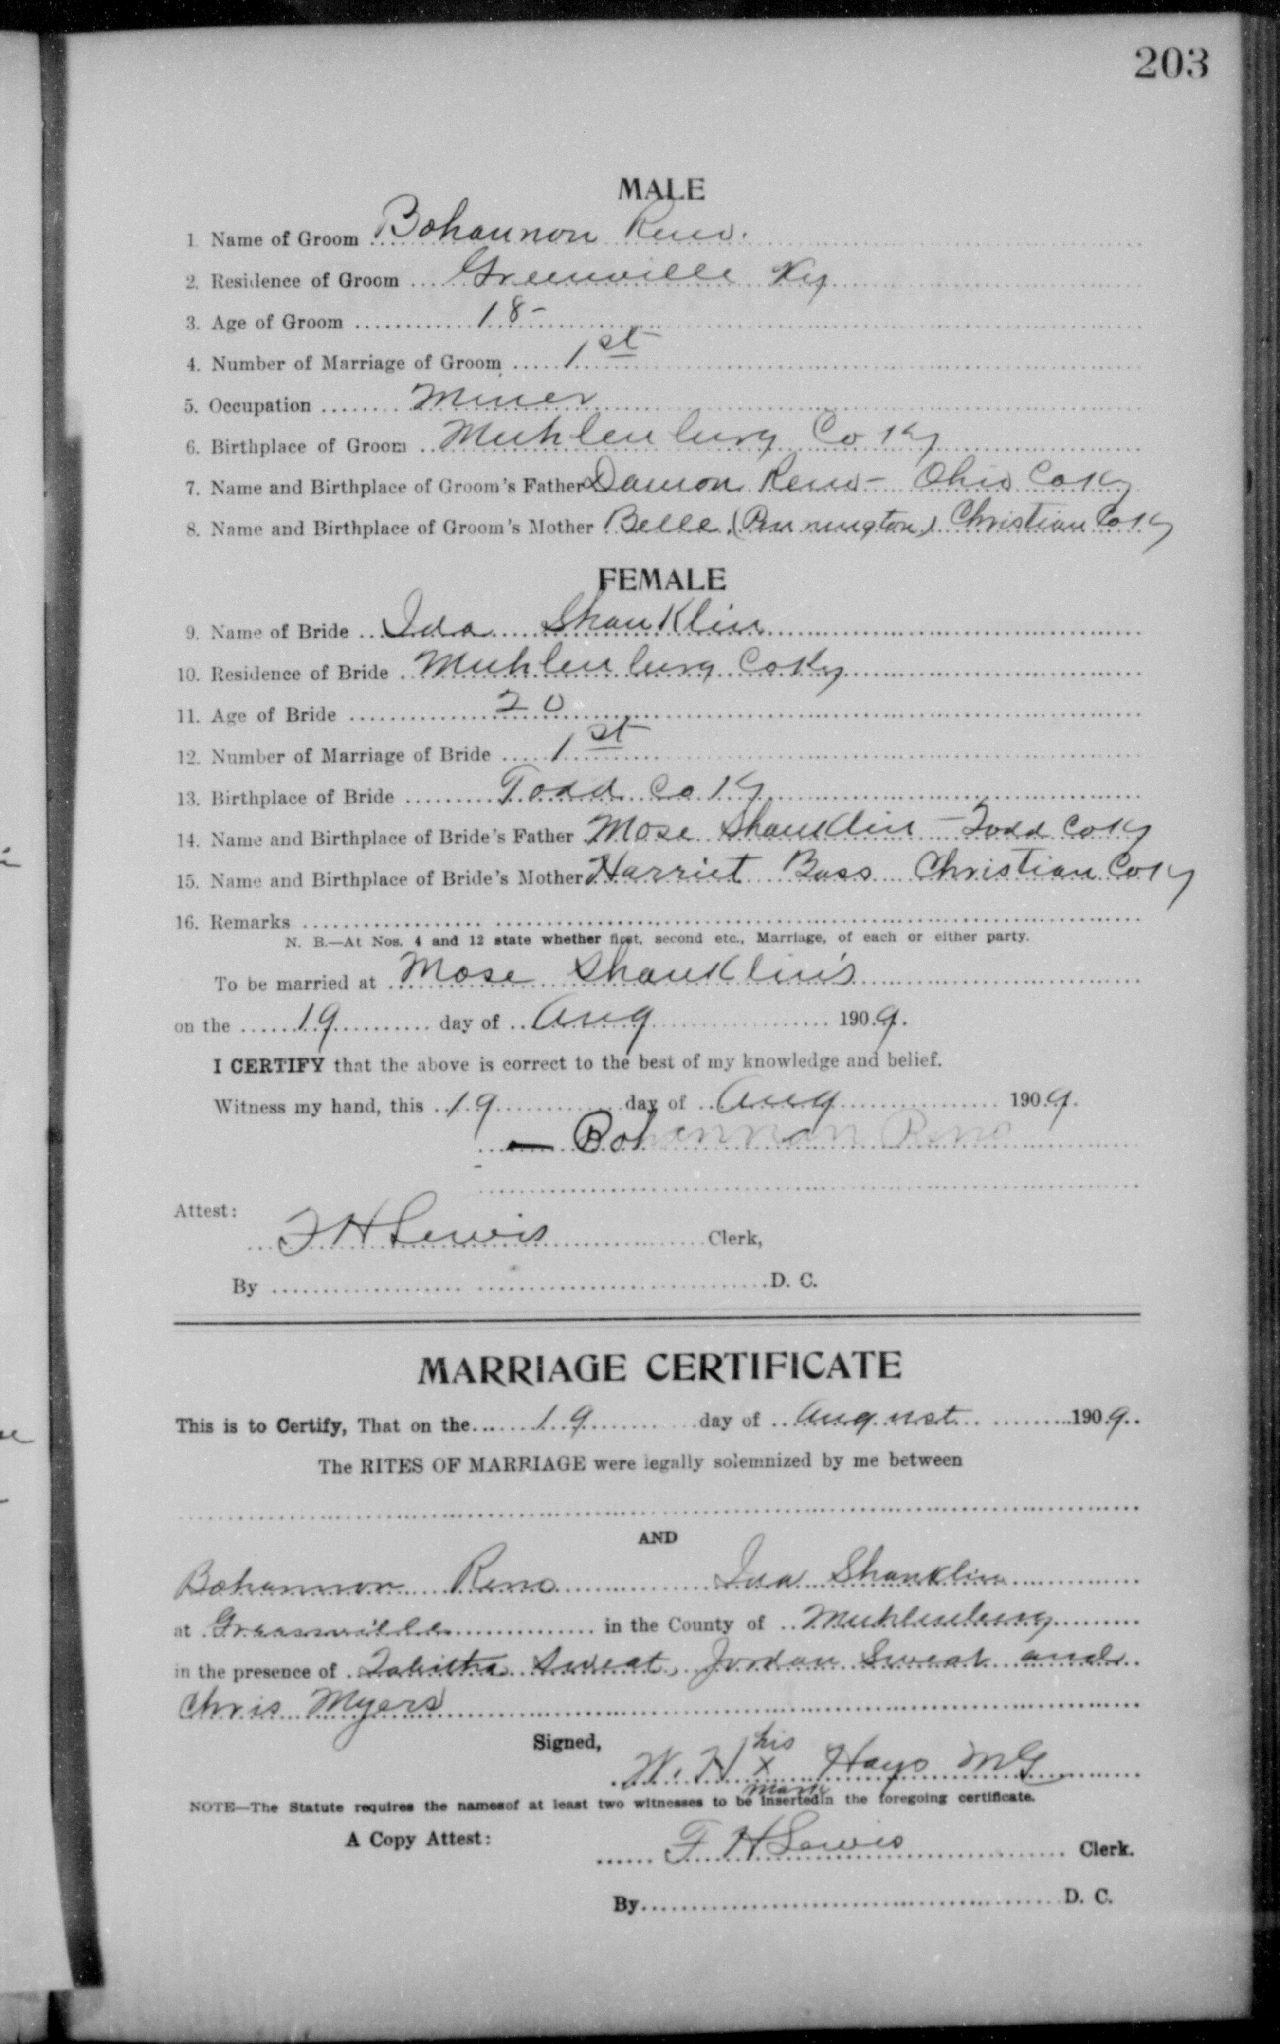 203
MALE
1 Name of Groom Bohannon Reno.
2. Residence of Groom Greenville Ky
3. Age of Groom 18-
4. Number of Marriage of Groom 1st
5. Occupation Miner
6. Birthplace of Groom Muhlenburg Co Ky
7. Name and Birthplace of Groom's Father Damon Reno - Ohio Co Ky
8. Name and Birthplace of Groom's Mother Belle (Pennington) Christian Co Ky
FEMALE
9. Name of Bride Ida Shanklin
10. Residence of Bride Muhlenburg Co Ky
11. Age of Bride 20
12. Number of Marriage of Bride 1st
13. Birthplace of Bride Todd Co Ky
14. Name and Birthplace of Bride's Father Mose Shanklin - Todd Co Ky
15. Name and Birthplace of Bride's Mother Harriet Bass Christian Co Ky
16. Remarks
N. B.—At Nos. 4 and 12 state whether first, second etc., Marriage, of each or either party.
To be married at Mose Shanklin's
on the 19 day of Aug 1909.
I CERTIFY that the above is correct to the best of my knowledge and belief.
Witness my hand, this 19 day of Aug 1909.
— Bohannan Reno
Attest:
F H Lewis Clerk,
By D. C.
MARRIAGE CERTIFICATE
This is to Certify, That on the 19 day of August 1909.
The RITES OF MARRIAGE were legally solemnized by me between
AND
Bohannon Reno Ida Shanklin
at Greenville in the County of Muhlenburg
in the presence of Tabitha Sweat, Jordan Sweat and
Chris Myers
Signed,
his
W. H x Hays MG
mark
NOTE—The Statute requires the namesof at least two witnesses to be insertedin the foregoing certificate.
A Copy Attest:
F H Lewis Clerk.
By D. C.